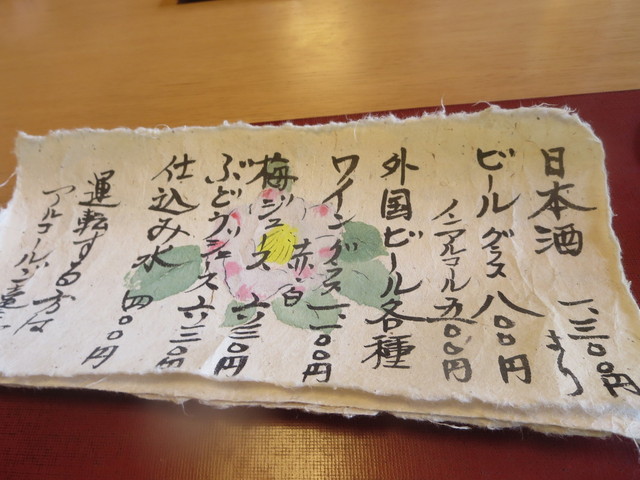 日本酒 一、三〇〇円より
ビール グラス 八〇〇円
ノンアルコール 五〇〇円
外国ビール各種
ワイングラス 赤・白 一、一〇〇円
梅ジュース 六三〇円
ぶどうジュース 六三〇円
仕込み水 四〇〇円
運転する方々
アルコール